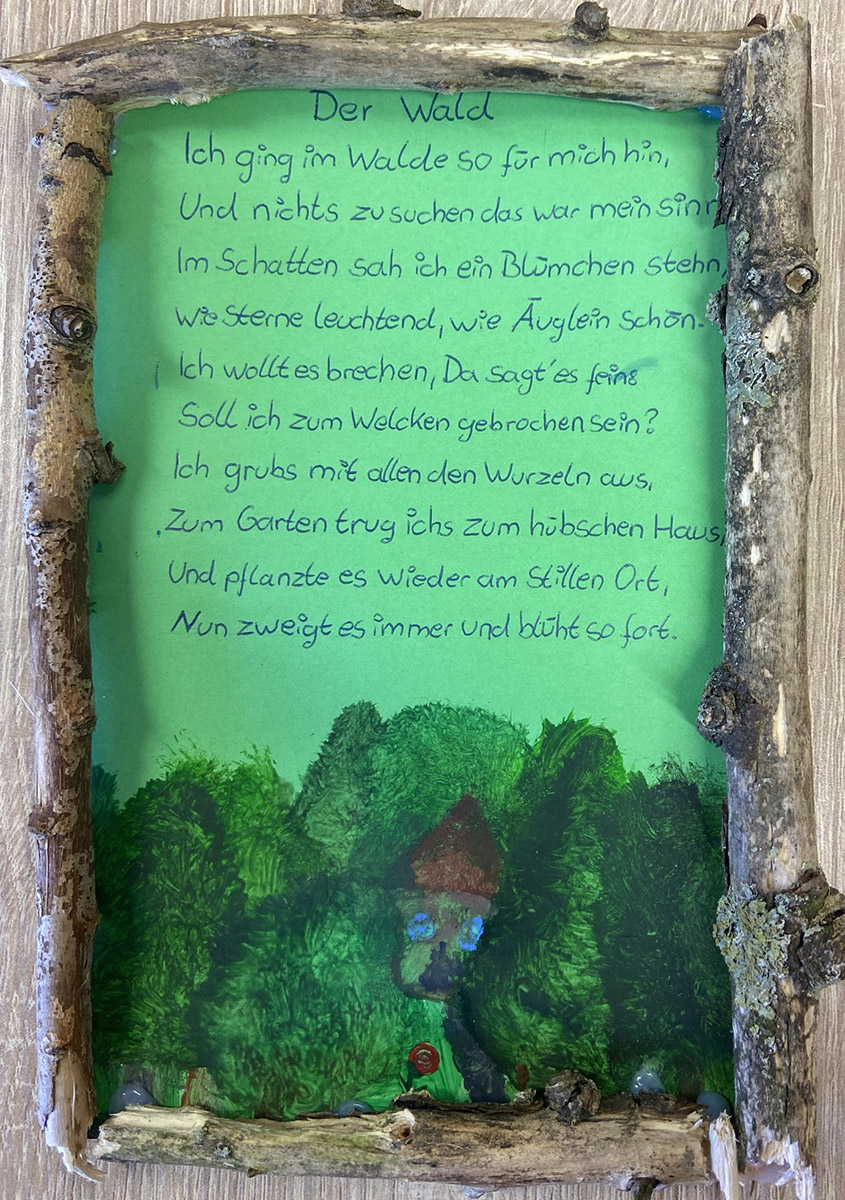 Der Wald
Ich ging im Walde so für mich hin,
Und nichts zu suchen das war mein sinn
Im Schatten sah ich ein Blümchen stehn,
wie Sterne leuchtend, wie Äuglein schön.
Ich wollt es brechen, Da sagt' es fein:
Soll ich zum Welcken gebrochen sein?
Ich grubs mit allen den Wurzeln aus,
Zum Garten trug ichs zum hübschen Haus,
Und pflanzte es wieder am Stillen Ort,
Nun zweigt es immer und blüht so fort.